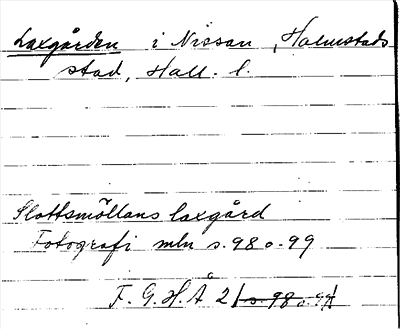 Laxgården i Nissan, Halmstads
stad, Hall. l.
Slottsmöllans laxgård
Fotografi mln s. 98 o. 99
F. G. H. Å 2 (s. 98 o. 99)